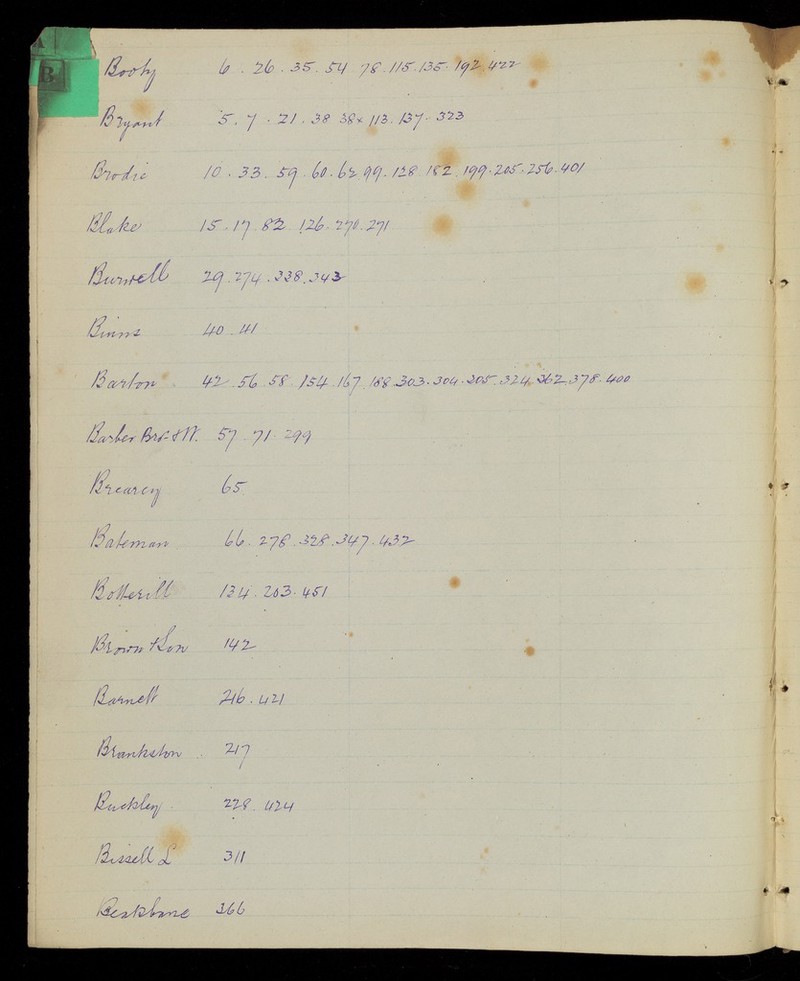 A
B
Booty 6 . 26 . 35 . 54 . 78 . 115 . 135 . 192 . 422
Bryant 5 . 7 . 21 . 38 38x 113 . 137 . 323
Brodie 10 . 33 . 59 . 60 . 62 . 99 . 128 . 182 . 199 . 205 . 256 . 401
Blake 15 . 17 . 82 126 . 270 . 271
Burwell 29 . 274 . 338 . 343
Binns 40 . 41
Barton 42 . 56 . 58 . 154 . 167 . 188 . 303 . 304 . 305 . 324 . 362 . 378 . 400
Barber Bros & W. 57 . 71 . 299
Brearey 65
Bateman 66 . 278 . 328 . 347 . 432
Botterill 134 . 203 . 451
Brown & Son 142
Barnett 216 . 421
Brankston 217
Buckley 228 . 424
Bissell L 311
366